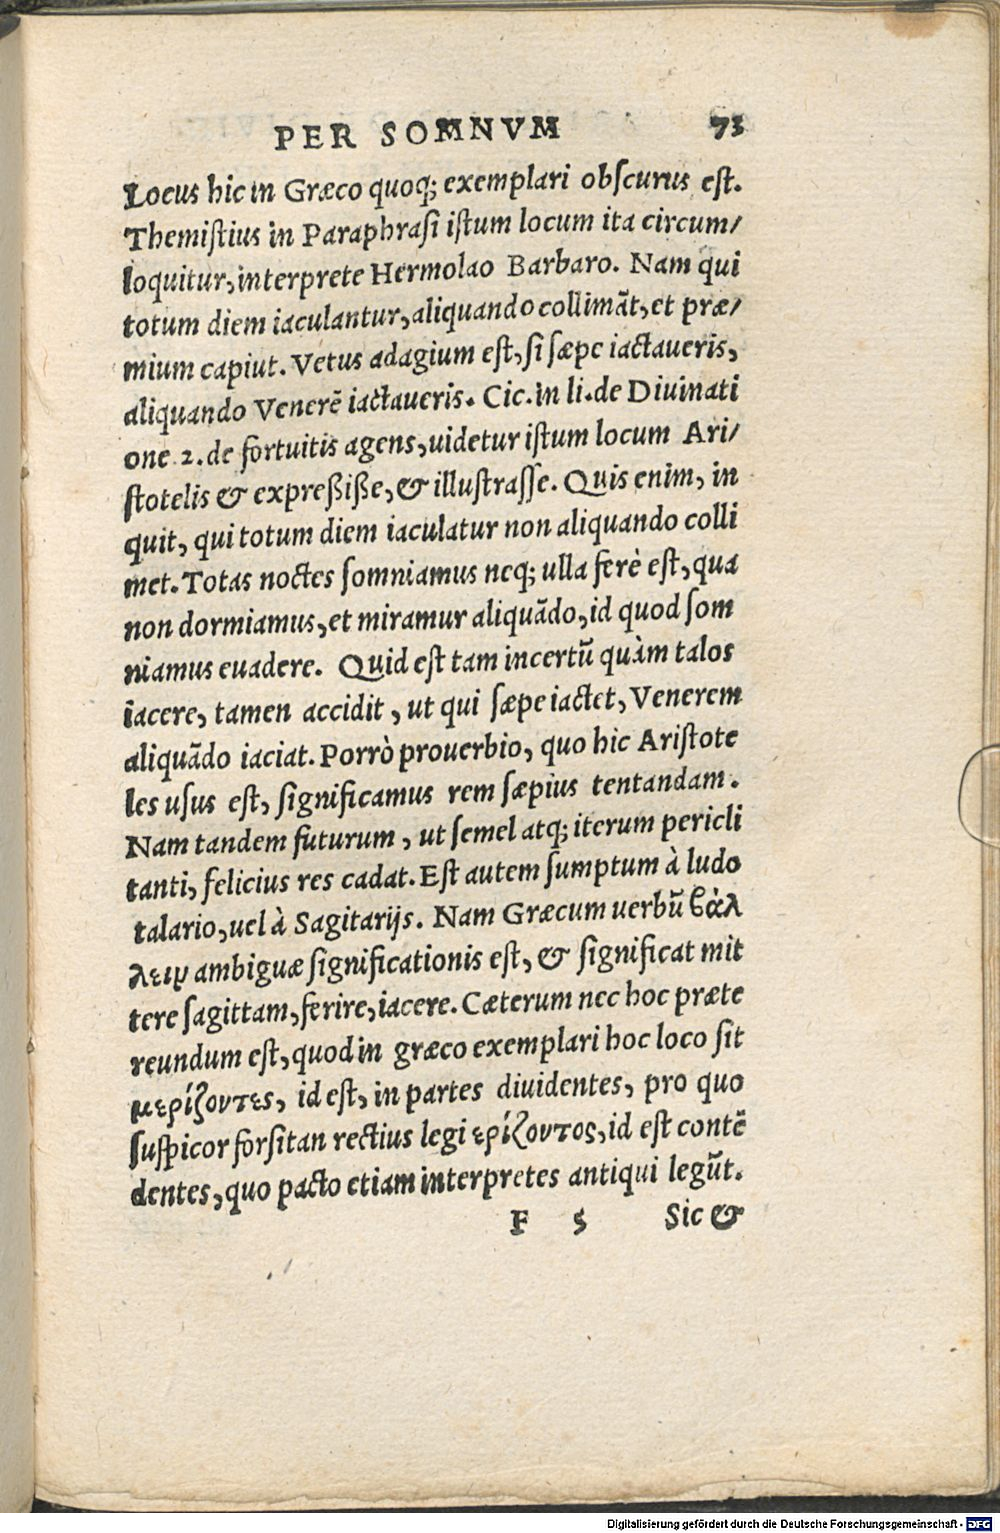 PER SOMNVM 73
Locus hic in Græco quoq; exemplari obſcurus eſt.
Themiſtius in Paraphraſi iſtum locum ita circum/
loquitur, interprete Hermolao Barbaro. Nam qui
totum diem iaculantur, aliquando collimãt, et præ/
mium capiut. Vetus adagium eſt, ſi ſæpe iactaueris,
aliquando Venerẽ iactaueris. Cic. in li. de Diuinati
one 2. de fortuitis agens, uidetur iſtum locum Ari/
ſtotelis & expreßiße, & illuſtraſſe. Quis enim, in
quit, qui totum diem iaculatur non aliquando colli
met. Totas noctes ſomniamus neq; ulla ferè eſt, qua
non dormiamus, et miramur aliquãdo, id quod ſom
niamus euadere. Quid eſt tam incertũ quàm talos
iacere, tamen accidit, ut qui ſæpe iactet, Venerem
aliquãdo iaciat. Porrò prouerbio, quo hic Ariſtote
les uſus eſt, ſignificamus rem ſæpius tentandam.
Nam tandem futurum, ut ſemel atq; iterum pericli
tanti, felicius res cadat. Eſt autem ſumptum à ludo
talario, uel à Sagitarijs. Nam Græcum uerbũ ϐάλ
λειν ambiguæ ſignificationis eſt, & ſignificat mit
tere ſagittam, ferire, iacere. Cæterum nec hoc præte
reundum eſt, quod in græco exemplari hoc loco ſit
μερίζοντες, id eſt, in partes diuidentes, pro quo
ſuſpicor forſitan rectius legi ερίζοντος, id eſt contẽ
dentes, quo pacto etiam interpretes antiqui legũt.
F 5 Sic &
Digitalisierung gefördert durch die Deutsche Forschungsgemeinschaft - DFG